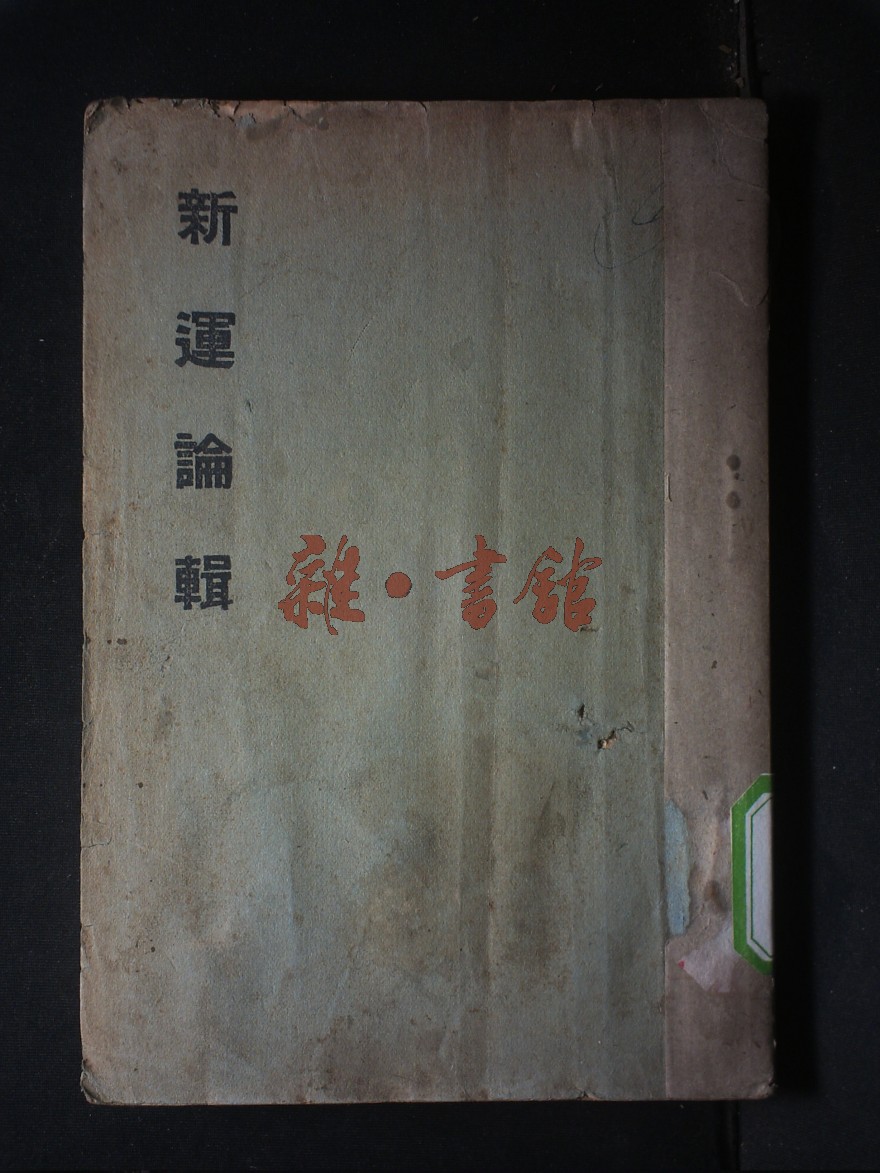 新運論輯
雜·書館